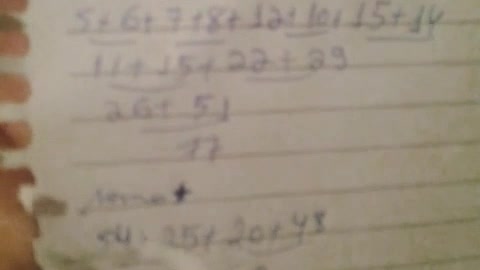 5+6+7+8+12+10+15+14
11+15+22+29
26+51
77
54. 25+20+48